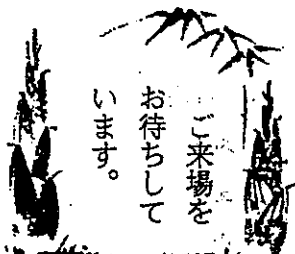 ご来場を
お待ちして
います。